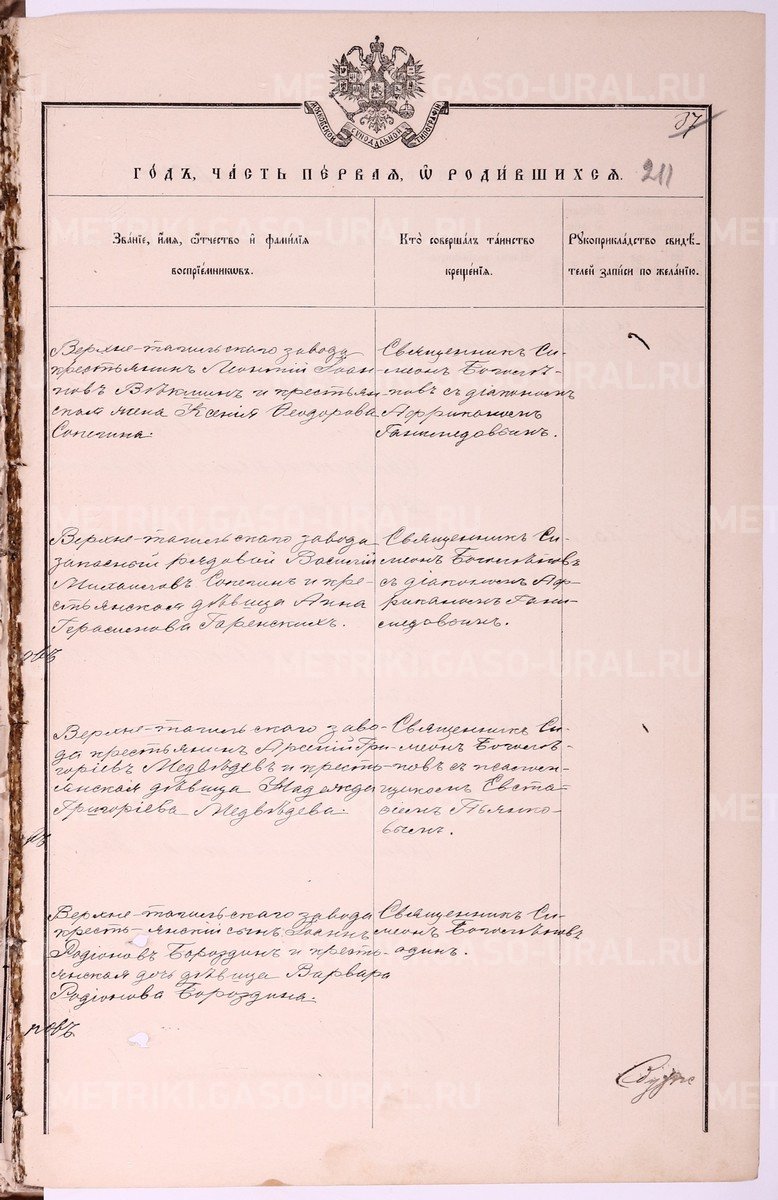 МОСКОВСКОЙ СѴНОДАЛЬНОЙ ТИПОГРАФІИ
37
ГО́ДЪ, ЧА́СТЬ ПЕ́РВАЯ, Ѡ РОДИ́ВШИХСЯ.
211
Зва́нїе, и́мя, ѻ҆́тчество и҆ фами́лїя
воспрїе́мникѡвъ.
Кто̀ соверша́лъ та́инство
креще́нїя.
Рꙋкоприкла́дство свидѣ́-
телей за́писи по жела́нїю.
Верхне-тагильскаго завода
крестьянинъ Леонтій Іоан-
новъ Вѣкшинъ и крестьян
ская жена Ксенія Ѳеодорова
Сопегина.
Священникъ Си-
меонъ Боголѣ-
повъ съ діакономъ
Африканомъ
Ганимедовымъ.
Верхне-тагильскаго завода
запасный рядовой Василій
Михаиловъ Сопегинъ и кре-
стьянская дѣвица Анна
Герасимова Гаренскихъ.
Священникъ Си-
меонъ Боголѣповъ
съ діакономъ Аф-
риканомъ Гани-
медовымъ.
Верхне-тагильскаго заво-
да крестьянинъ Арсеній Гри-
горіевъ Медвѣдевъ и кресть-
янская дѣвица Надежда
Григоріева Медвѣдева.
Священникъ Си-
меонъ Боголѣ-
повъ съ псалом-
щикомъ Евста-
фіемъ Пьянко-
вымъ.
Верхне-тагильскаго завода
кресть-янскій сынъ Іоаннъ
Родіоновъ Бороздинъ и кресть-
янская дочь дѣвица Варвара
Родіонова Бороздина.
Священникъ Си-
меонъ Боголѣповъ
одинъ.
METRIKI.GASO-URAL.RU